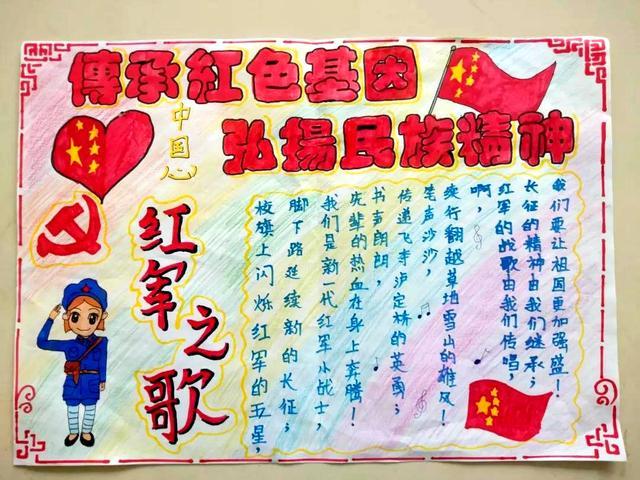 傳承紅色基因
弘揚民族精神
中国心
红军之歌
校旗上闪烁红军的五星,
脚下路延续新的长征;
我们是新一代红军小战士,
先辈的热血在身上奔腾!
书声朗朗,
传递飞夺泸定桥的英勇;
笔声沙沙,
续行翻越草地雪山的雄风!
啊,
红军的战歌由我们传唱,
长征的精神由我们继承;
我们要让祖国更加强盛!